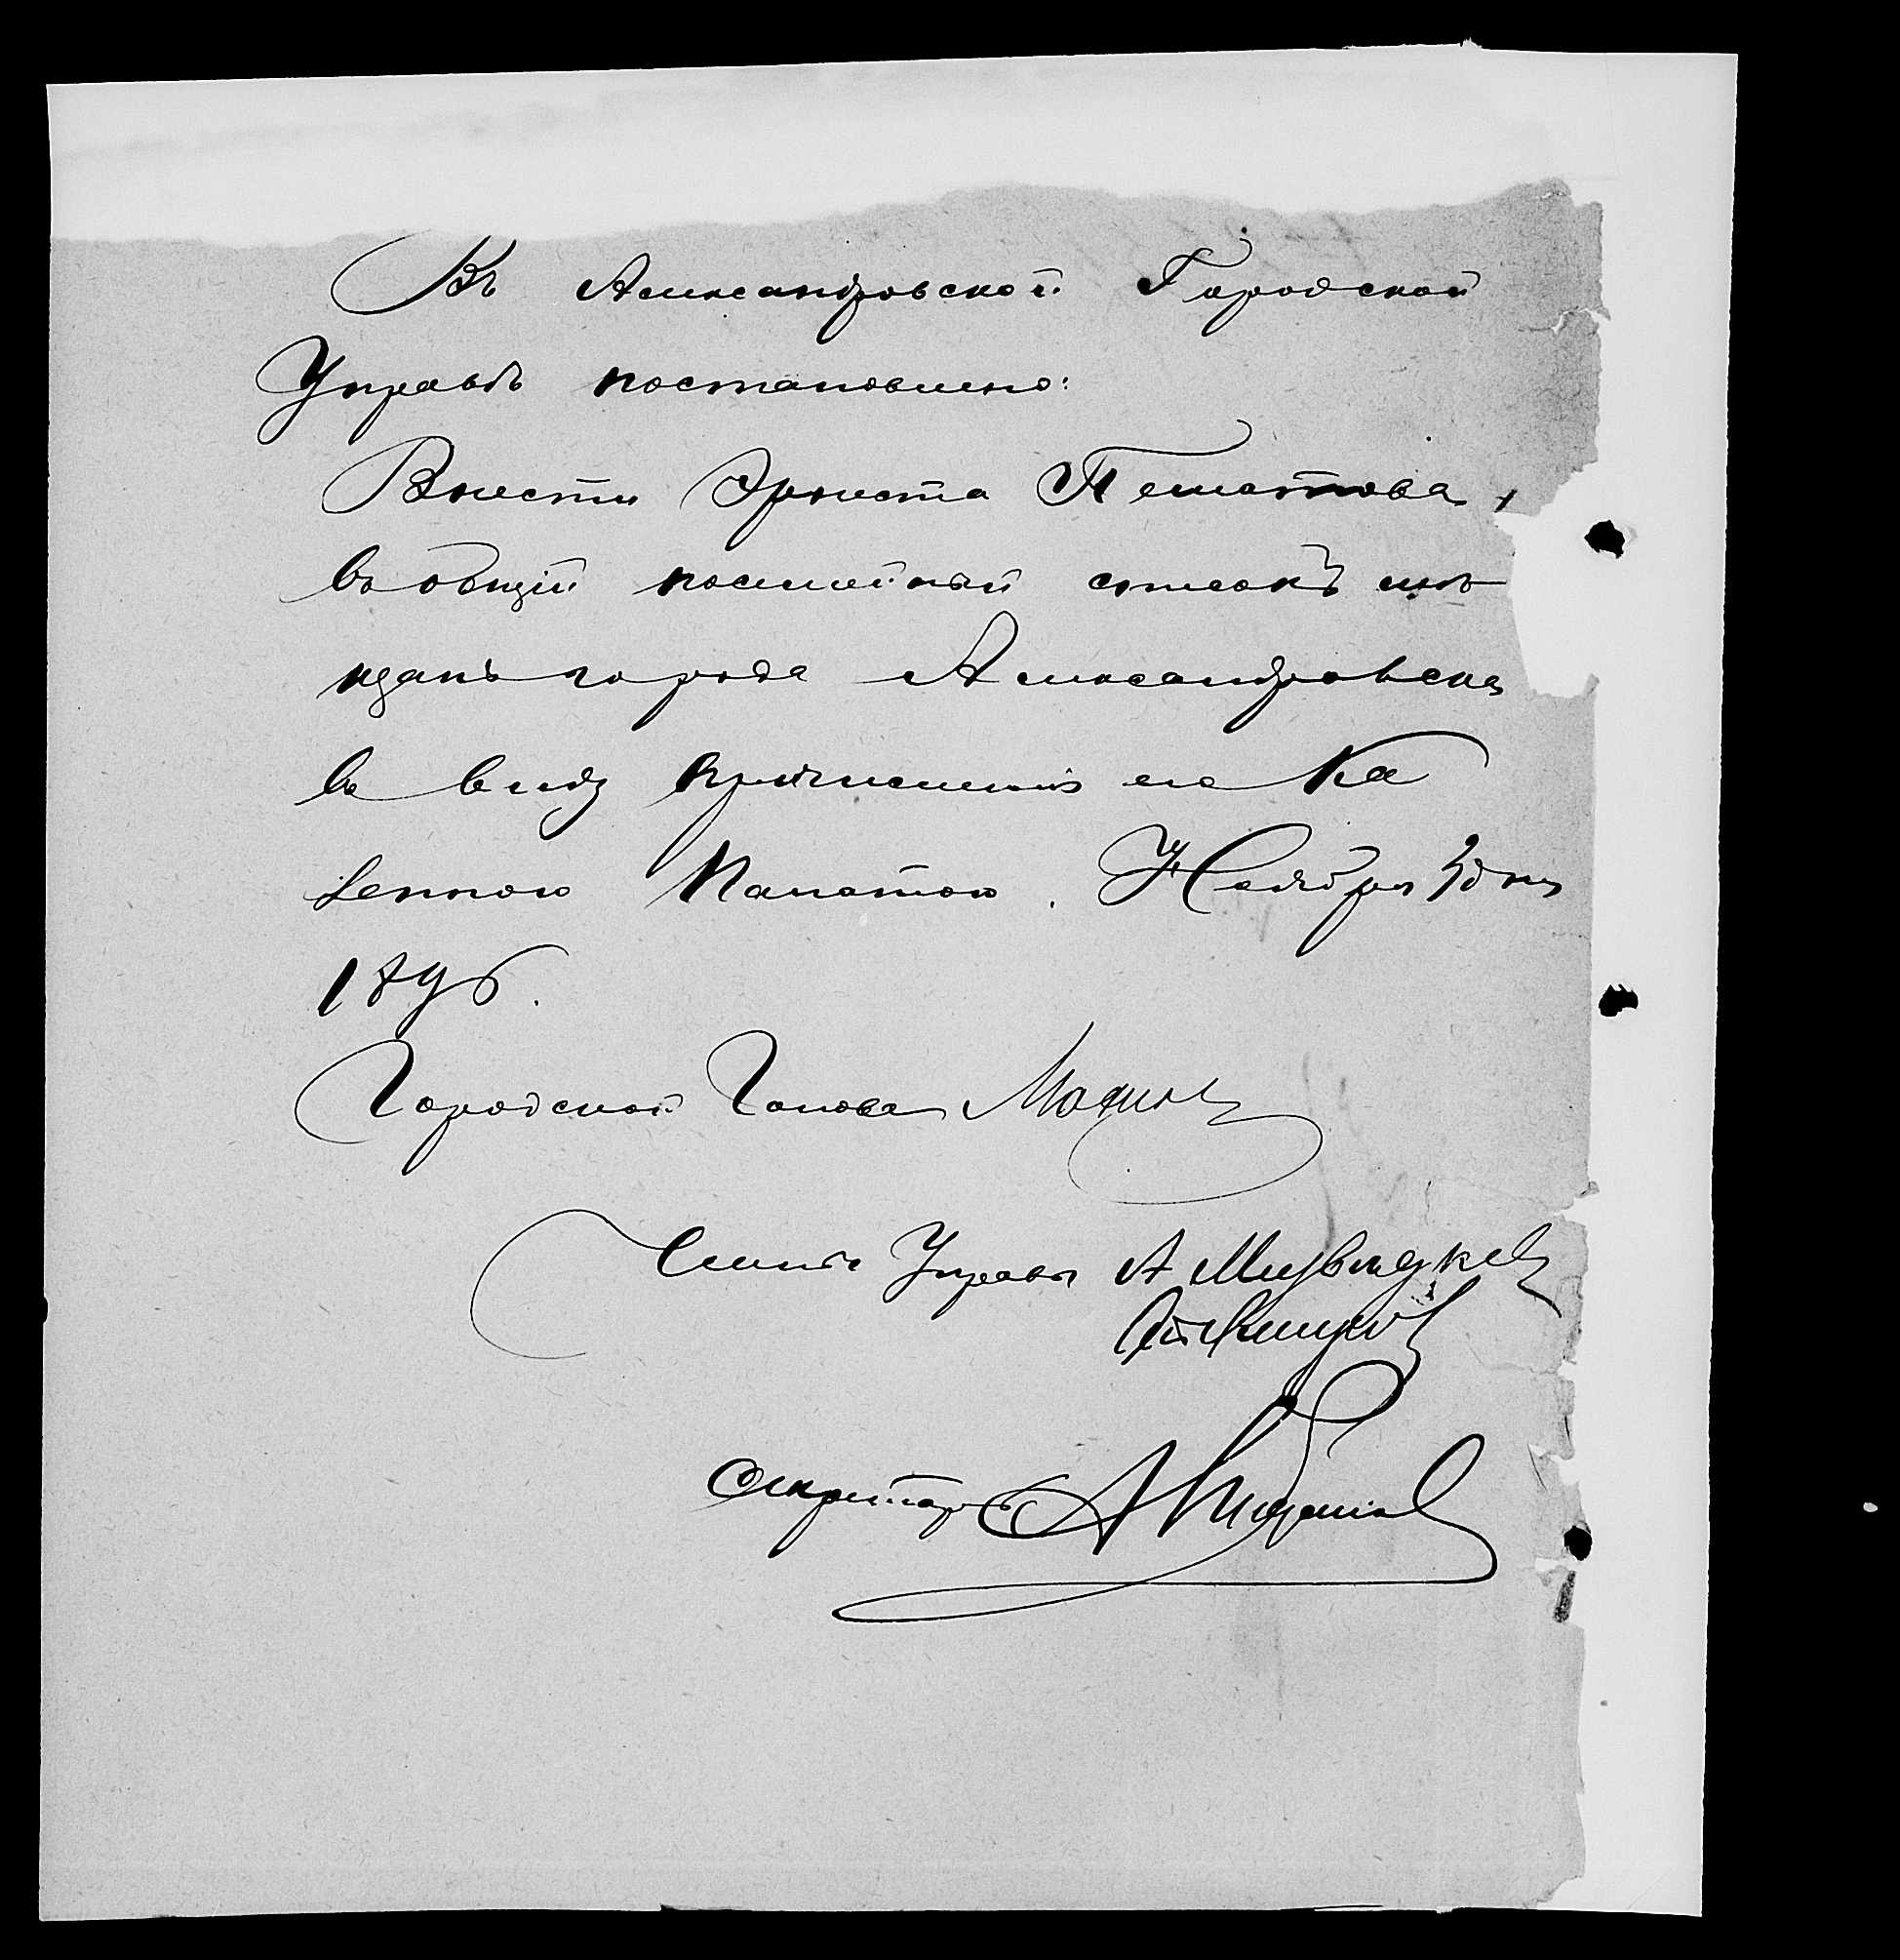 Въ Александровской Городской
Управѣ постановлено:
Внести Эрнеста
въ общій посемейный списокъ мѣ
щанъ города Александровска
въ виду причисленія его Ка
зенною Палатою. Ноября 30 дня
1896.
Городской Голова
Члены Управы А
Секретарь А